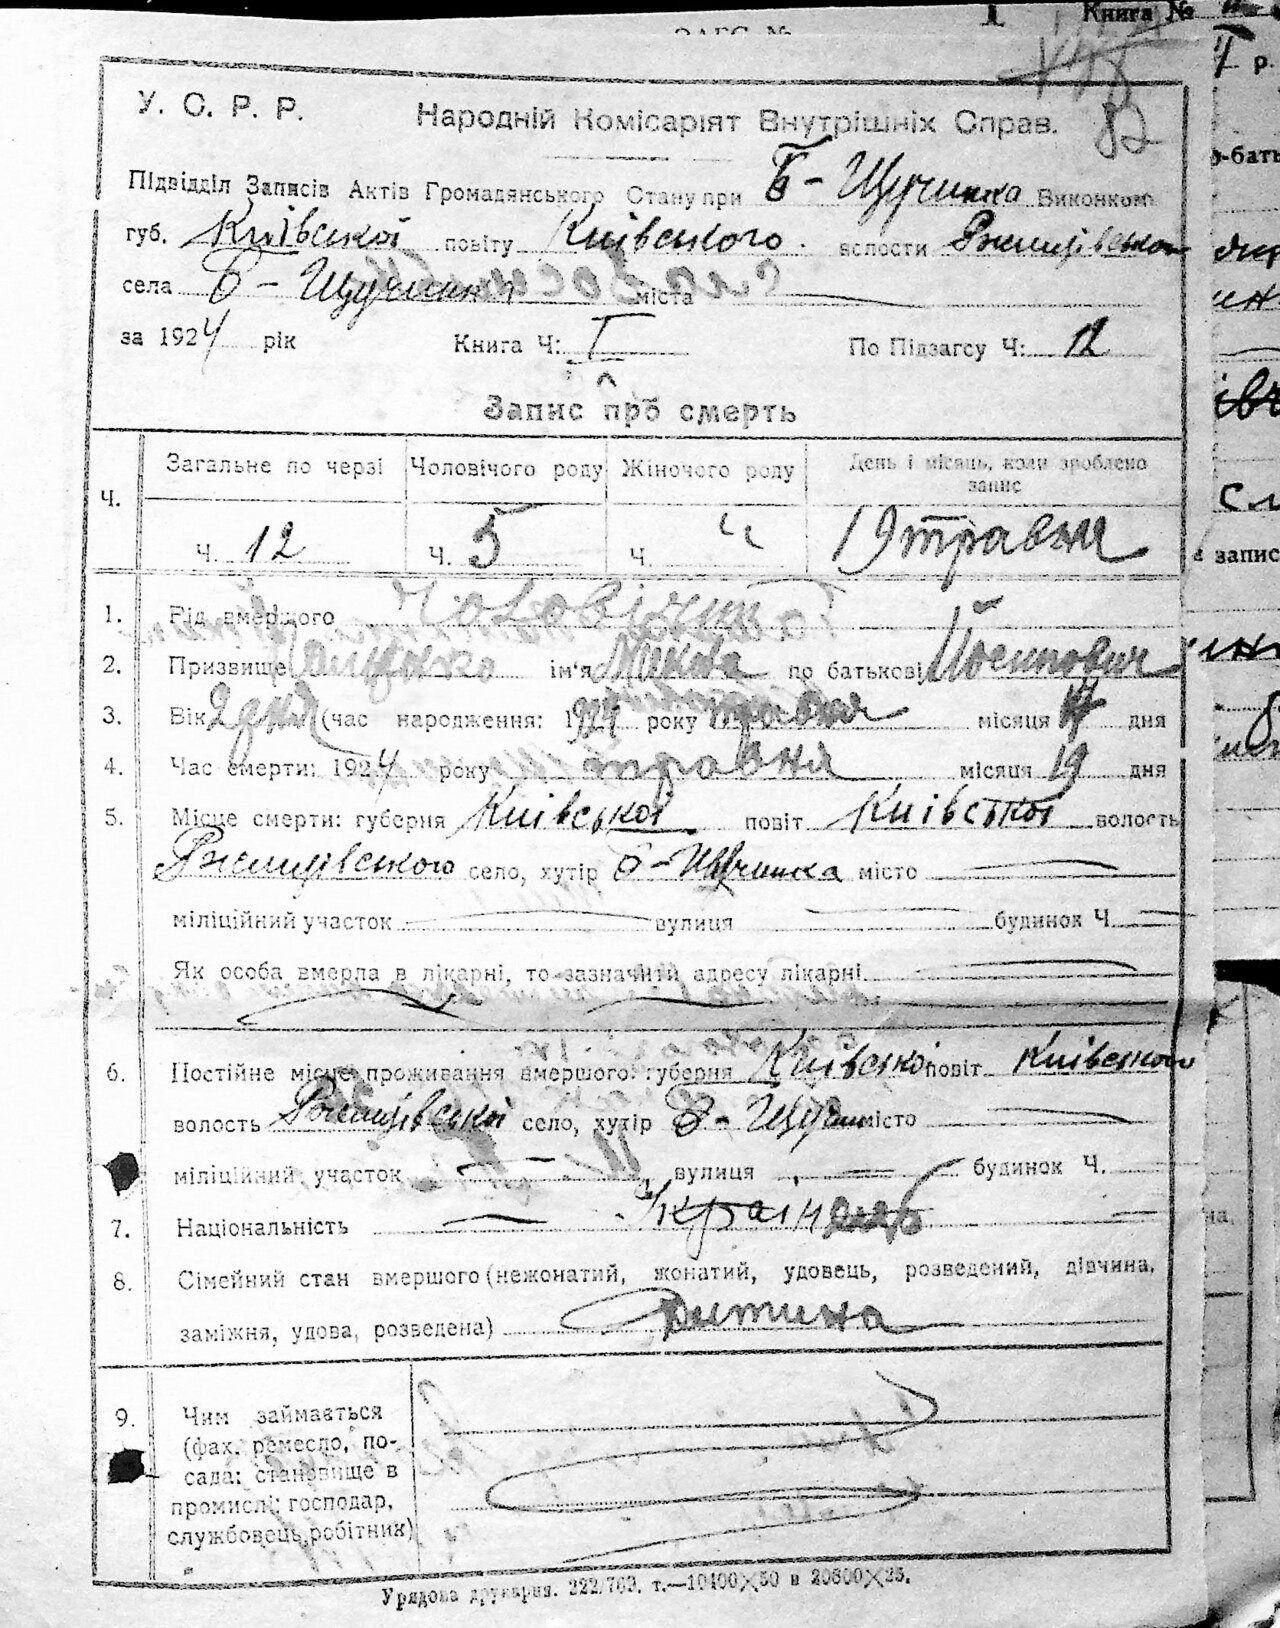 ЗАГС №
1 Книга №
448
82
У. С. Р. Р. Народній Комісаріят Внутрішніх Справ.
Підвідділ Записів Актів Громадянського Стану при Б-Щучинка Виконком
губ. Київської повіту Київського волости Ржищівської
села Б-Щучинка міста
за 1924 рік Книга Ч: I По Підзагсу Ч: 12
Запис про смерть
Ч. Загальне по черзі Чоловічого роду Жіночого роду День і місяць, коли зроблено запис
Ч. 12 Ч. 5 Ч. " 19 травня
1. Рід вмершого Чоловічий
2. Призвище ім'я по батькові Йосипович
3. Вік 2 дня (час народження: 1924 року травня місяця 17 дня
4. Час смерти: 1924 року травня місяця 19 дня
5. Місце смерти: губерня Київської повіт Київської волость
Ржищівського село, хутір Б-Щучинка місто
міліційний участок вулиця будинок Ч.
Як особа вмерла в лікарні, то зазначити адресу лікарні
6. Постійне місце проживання вмершого: губерня Київської повіт Київського
волость Ржищівської село, хутір Б-Щучин місто
міліційний участок вулиця будинок Ч.
7. Національність Українець
8. Сімейний стан вмершого (нежонатий, жонатий, удовець, розведений, дівчина,
заміжня, удова, розведена) дитина
9. Чим займається
(фах, ремесло, по-
сада: становище в
промислі: господар,
службовець, робітник)
Урядова друкарня. 222/763. т.—10400×50 и 20800×25.